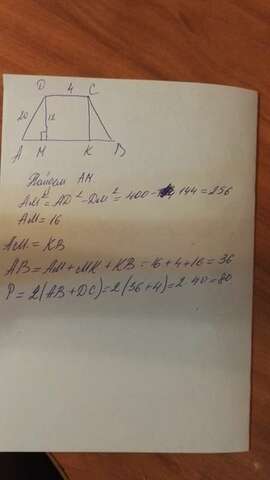 D 4 C
20 12
A M K B
Найдем AM
AM² = AD² - DM² = 400 - 144 = 256
AM = 16
AM = KB
AB = AM + MK + KB = 16 + 4 + 16 = 36
P = 2(AB + DC) = 2(36 + 4) = 2·40 = 80